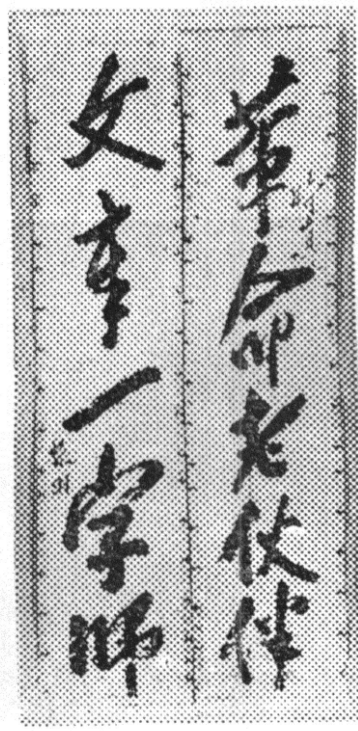 革命老伙伴
文章一字师